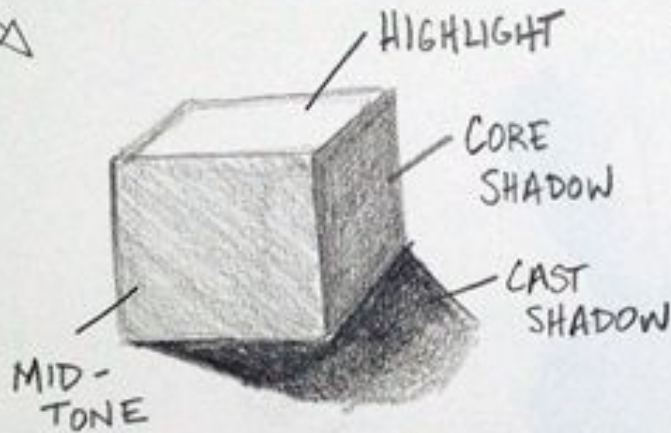 HIGHLIGHT
CORE
SHADOW
CAST
SHADOW
MID-
TONE